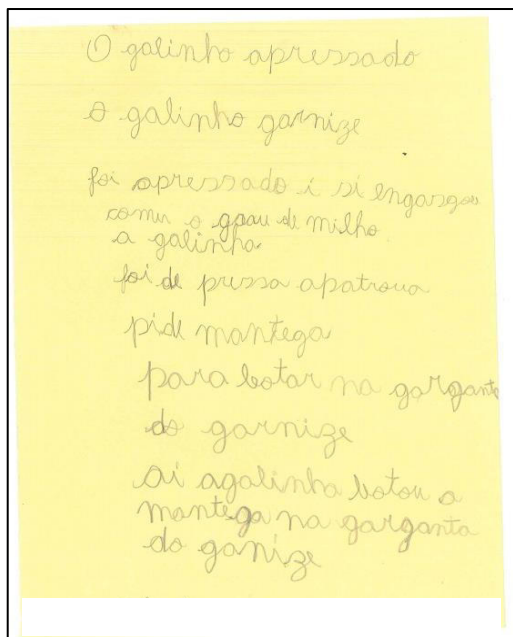 O galinho apressado
o galinho garnize
foi apressado i si engasgou
comeu o gpau de milho
a galinha
foi de pressa apatroua
pide mantega
para botar na garganta
do garnize
ai agalinha botou a
mantega na garganta
do ganize